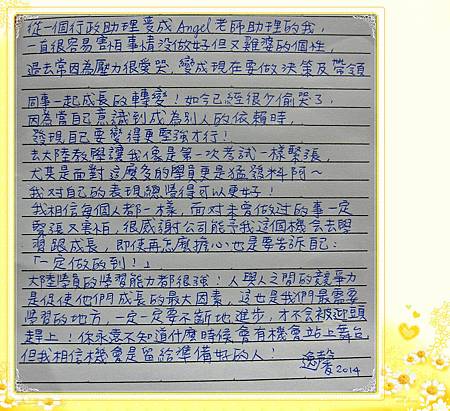 從一個行政助理變成Angel老師助理的我，
一直很容易害怕事情沒做好但又雞婆的個性，
過去常因為壓力很愛哭，變成現在要做決策及帶領
同事一起成長的轉變！如今已經很少偷哭了，
因為當自己意識到成為別人的依賴時，
發現自己要變得更堅強才行！
去大陸教學讓我像是第一次考試一樣緊張，
尤其是面對這麼多的學員更是猛發抖阿～
我對自己的表現總覺得可以更好！
我相信每個人都一樣，面對未曾做過的事一定
緊張又害怕，很感謝公司能予我這個機會去學
習跟成長，即使再怎麼擔心也是要告訴自己：
「一定做的到！」
大陸學員的學習能力都很強！人與人之間的競爭力
是促使他們成長的最大因素，這也是我們最需要
學習的地方，一定一定要不斷地進步，才不會被迎頭
趕上！你永遠不知道什麼時候會有機會站上舞台
但我相信機會是留給準備好的人！
逸馨 2014